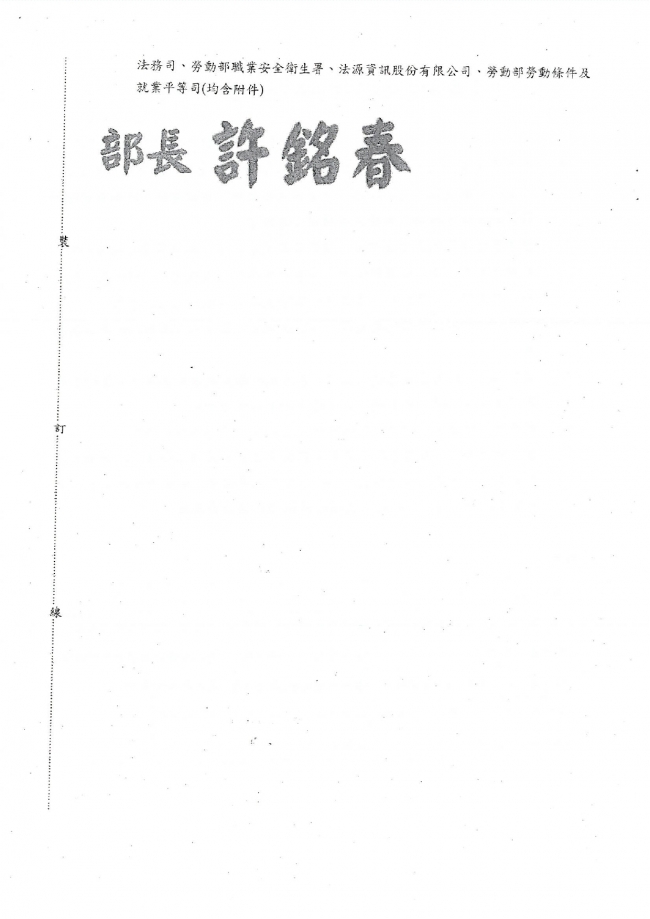 法務司、勞動部職業安全衛生署、法源資訊股份有限公司、勞動部勞動條件及
就業平等司(均含附件)
部長 許銘春
裝
訂
線